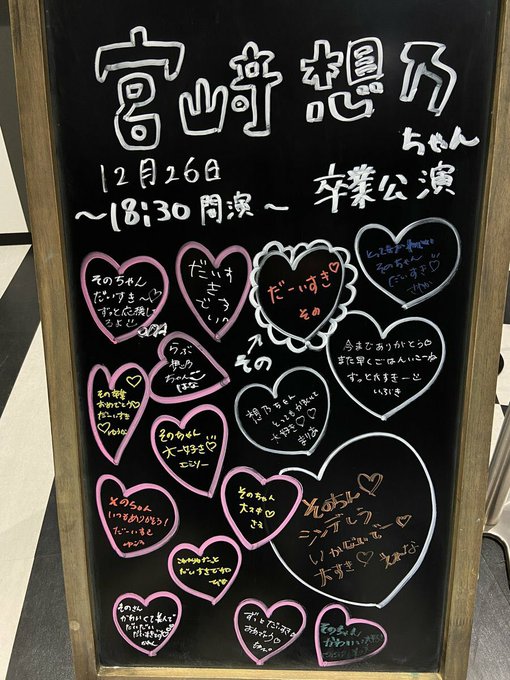 宮崎想乃
ちゃん
12月26日
卒業公演
~18:30開演~
そのちゃん
だいすき〜♡
ずっと応援し
てるよ
だいす
き
だーいすき♡
その
そのちゃん
だいすき♡
さやか
その
らぶ
想乃
ちゃん
はな
今までありがとう♡
また早くごはんいこーね
ずっと大すきー
いろは
その卒業
おめでとう♡
だーいすき
♡
想乃ちゃん
大好き♡
まりあ
そのちゃん
大一好き♡
エミリー
そのちゃん
いつもありがとう!
だーいすき
そのちゃん
大スキ♡
さえ
そのちん♡
シンデレラ
大すき♡
だいすきです♡
そのさん
かわいくて
だいすきです
ずっとだいすき
そのちゃん
かわいい